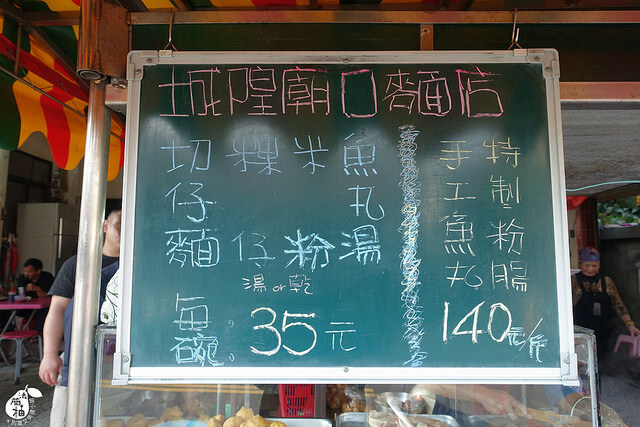 城隍廟口麵店
特製粉腸
手工魚丸
140元/斤
魚丸湯
米粉
粿仔
切仔麵
湯or乾
每碗:35元